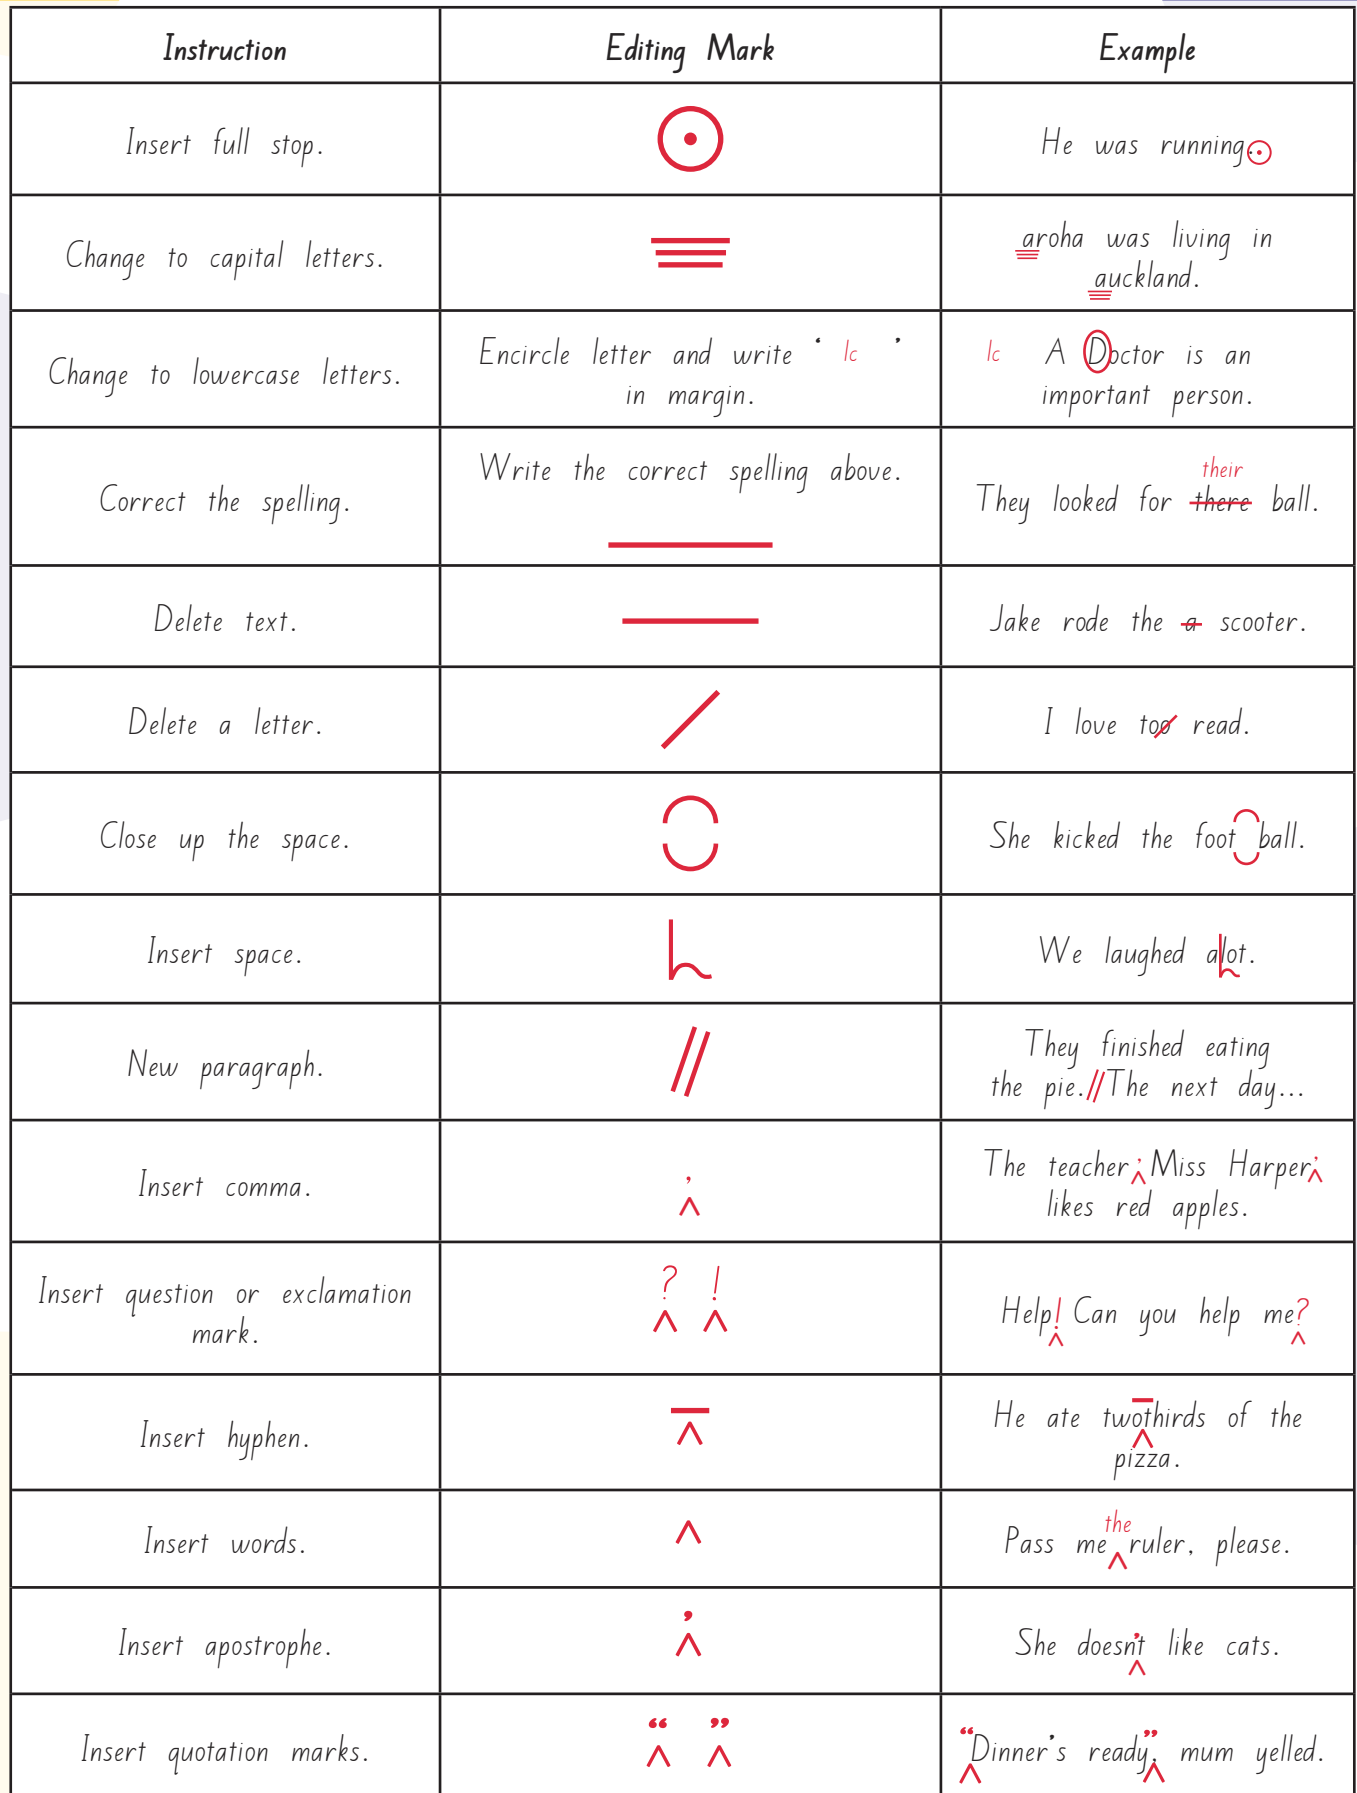 Instruction Editing Mark Example
Insert full stop. He was running.
Change to capital letters. aroha was living in
auckland.
Change to lowercase letters. Encircle letter and write ‘ lc ’
in margin. lc A Doctor is an
important person.
Correct the spelling. Write the correct spelling above. their
They looked for there ball.
Delete text. Jake rode the a scooter.
Delete a letter. I love too read.
Close up the space. She kicked the foot ball.
Insert space. We laughed alot.
New paragraph. They finished eating
the pie.//The next day...
Insert comma. , The teacher, Miss Harper,
likes red apples.
Insert question or exclamation
mark. ? ! Help! Can you help me?
Insert hyphen. He ate twothirds of the
pizza.
Insert words. the
Pass me ruler, please.
Insert apostrophe. ’ She doesn’t like cats.
Insert quotation marks. “ ” “Dinner’s ready,” mum yelled.